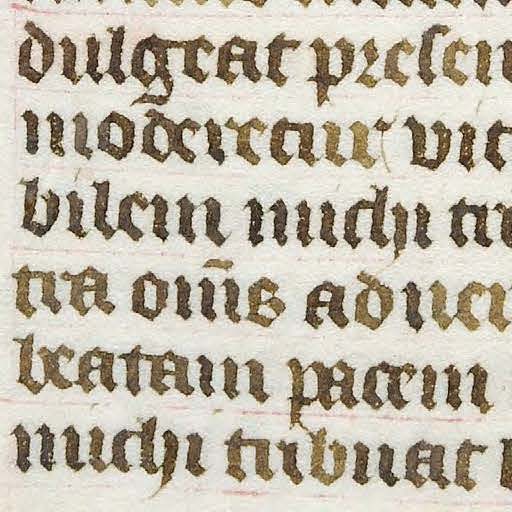 dulgeat presen
moderetur vit
bilem michi tri
tra om̄s aduer
beatam pacem
michi tribuat